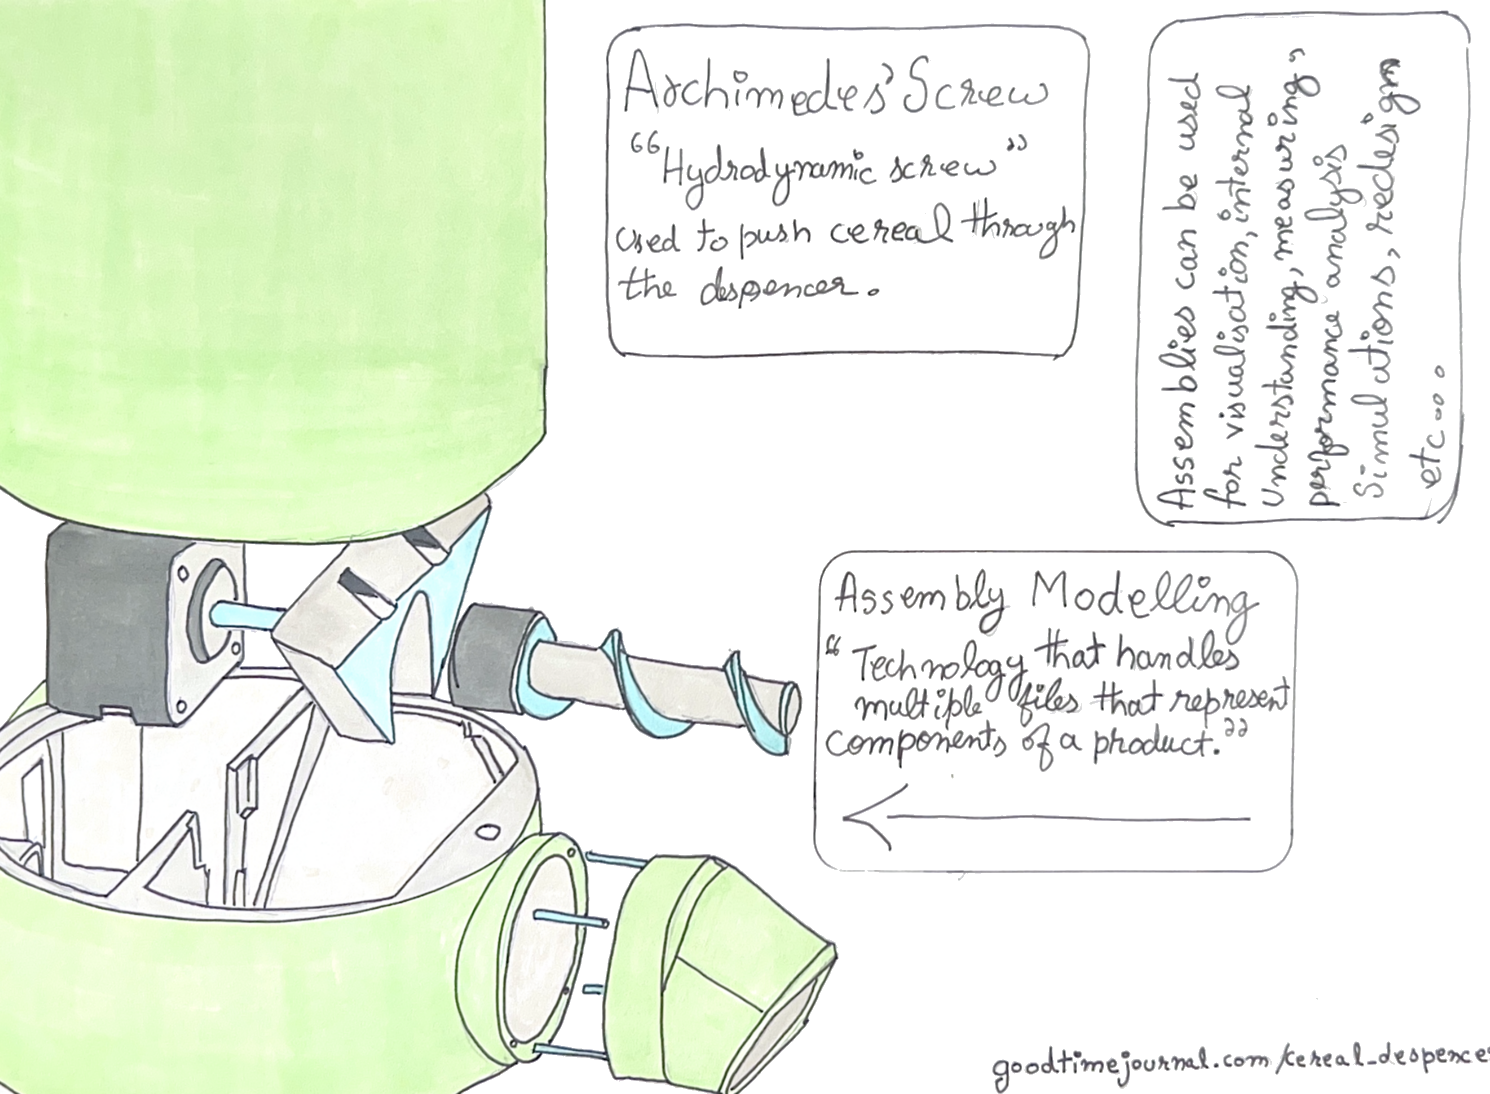 Archimedes' Screw
"Hydrodynamic screw"
used to push cereal through
the despencer.
Assemblies can be used
for visualisation, internal
Understanding, measuring,
performance analysis
Simulations, redesign
etc....
Assembly Modelling
"Technology that handles
multiple files that represent
components of a product."
goodtimejournal.com/cereal_despence